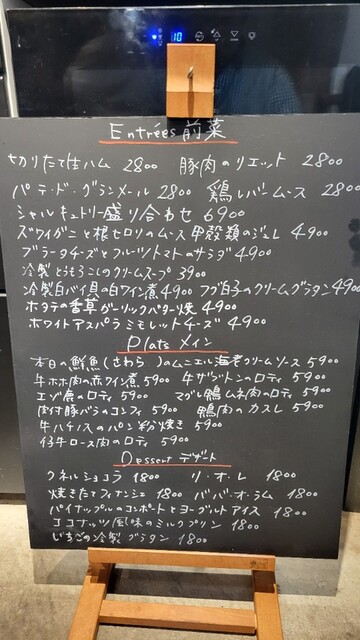 10
Entrées 前菜
切りたて生ハム 2800 豚肉のリエット 2800
パテ・ド・グランメール 2800 鶏レバームース 2800
シャルキュトリー盛り合わせ 6900
ズワイガニと根セロリのムース 甲殻類のジュレ 4900
ブラータチーズとフルーツトマトのサラダ 4900
冷製とうもろこしのクリームスープ 3900
冷製白バイ貝の白ワイン煮 4900 フグ白子のクリームグラタン 4900
ホタテの香草ガーリックバター焼 4900
ホワイトアスパラ ミモレットチーズ 4900
Plats メイン
本日の鮮魚(さわら )のムニエル 海老クリームソース 5900
牛ホホ肉の赤ワイン煮 5900 牛ザブトンのロティ 5900
エゾ鹿のロティ 5900 マグレ鴨ムネ肉のロティ 5900
肉付豚バラのコンフィ 5900 鴨肉のカスレ 5900
牛ハチノスのパン粉焼き 5900
仔牛ロース肉のロティ 5900
Dessert デザート
クネルショコラ 1800 リ・オ・レ 1800
焼きたてフィナンシェ 1800 ババ・オ・ラム 1800
パイナップルのコンポートとヨーグルトアイス 1800
ココナッツ風味のミルクプリン 1800
いちごの冷製グラタン 1800